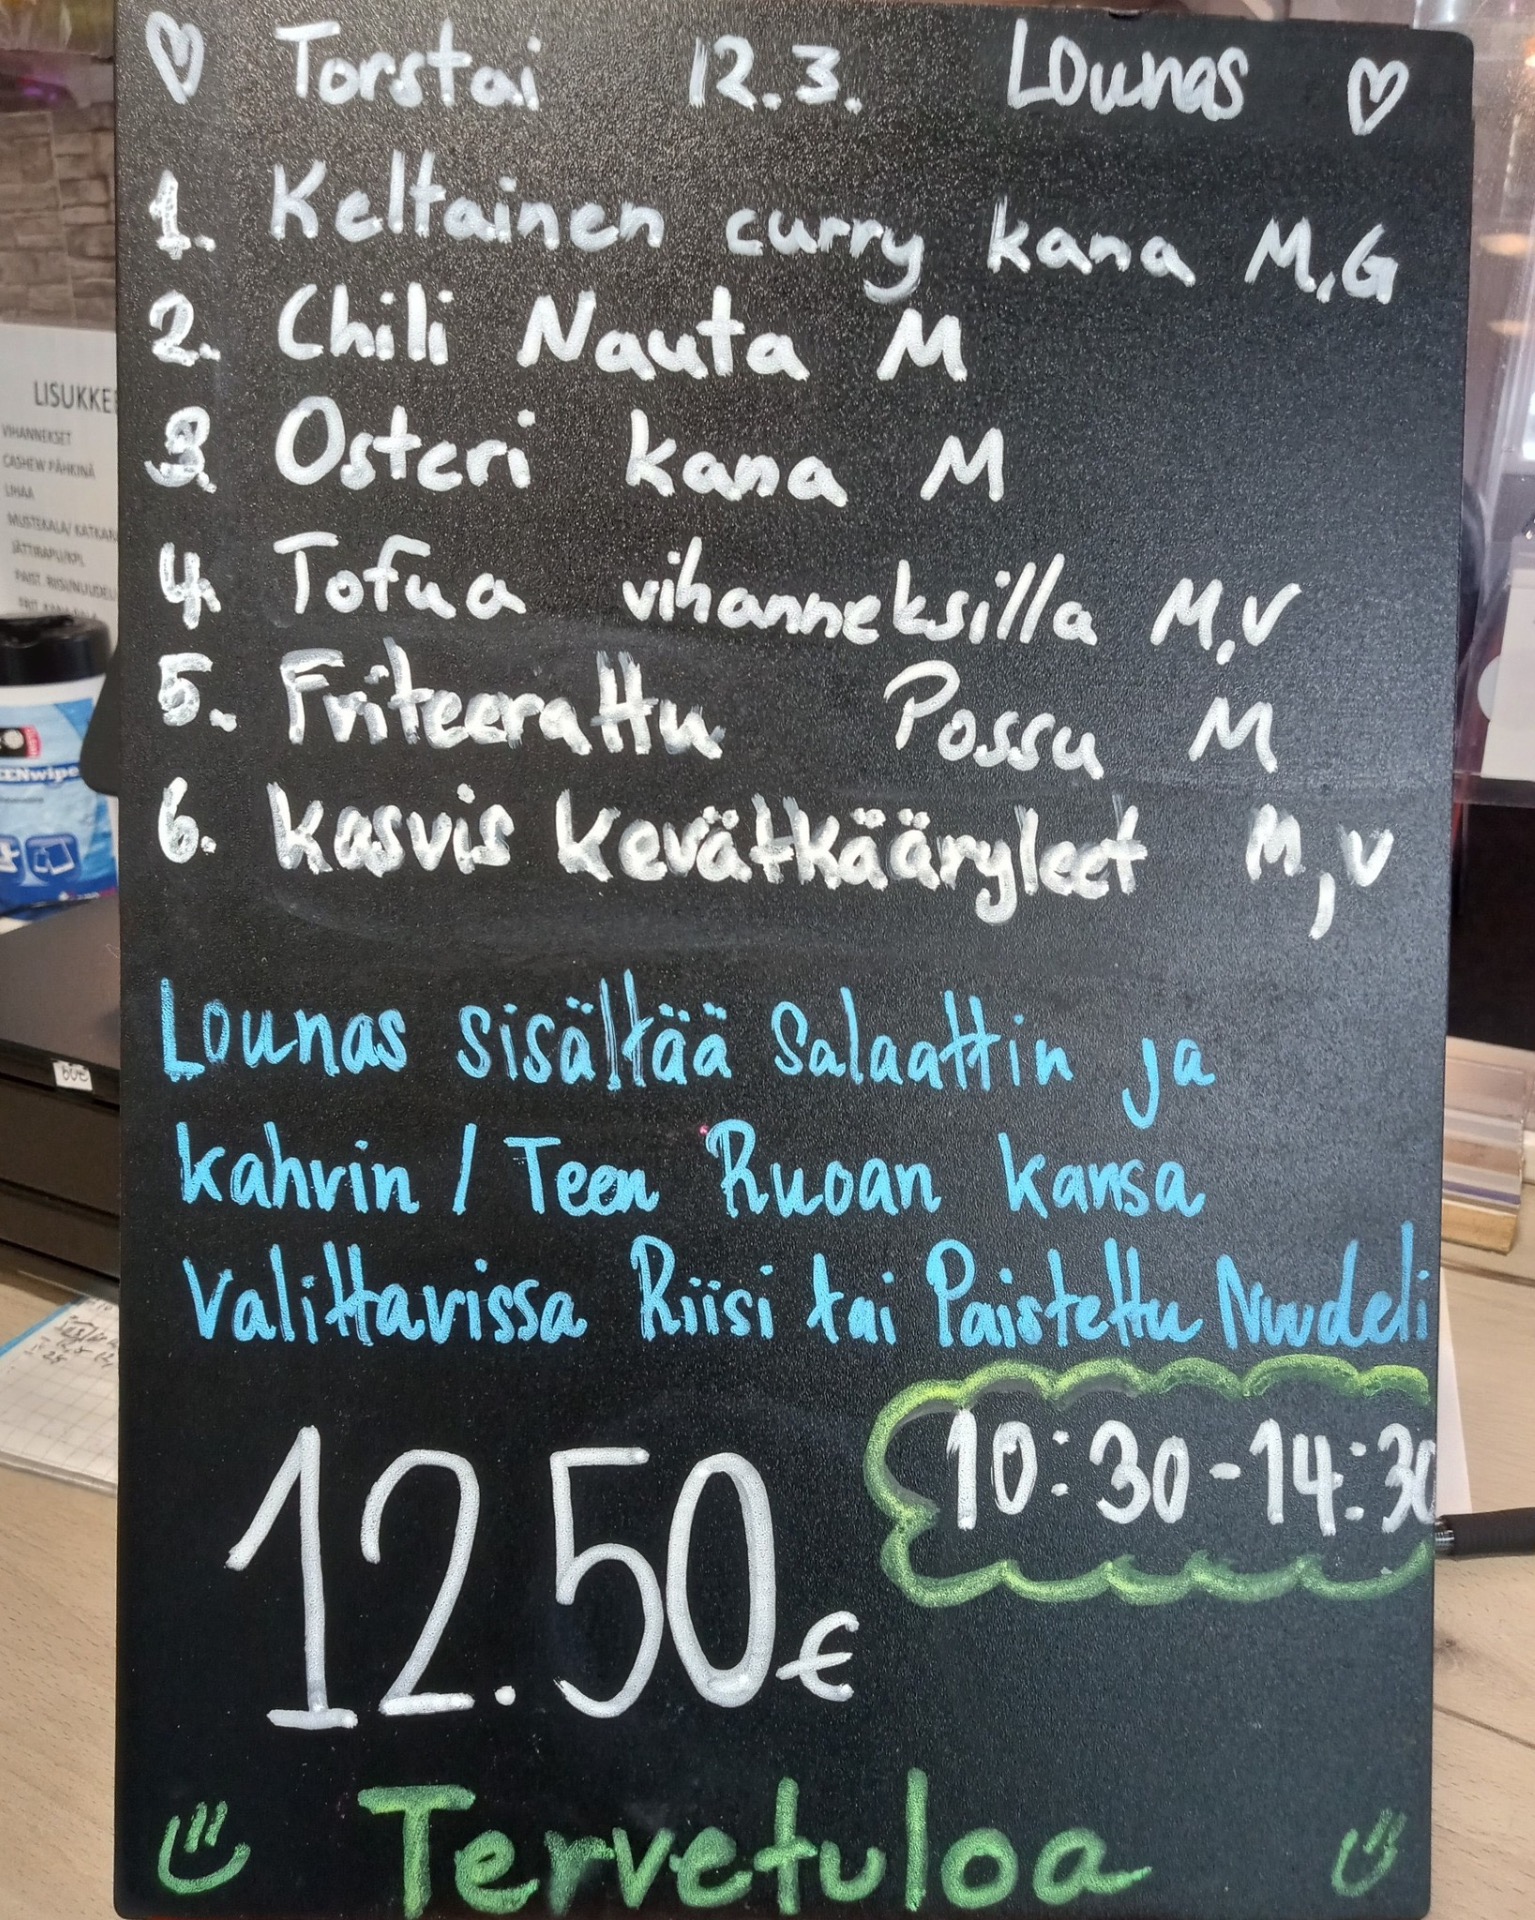 ♡ Torstai 12.3. Lounas ♡
1. Keltainen curry kana M,G
2. Chili Nauta M
3. Osteri kana M
4. Tofua vihanneksilla M,V
5. Friteerattu Possu M
6. Kasvis kevätkääryleet M,V
Lounas sisältää Salaattin ja
kahvin / Teen Ruoan kansa
Valittavissa Riisi tai Paistettu Nuudeli
10:30-14:30
12.50€
Tervetuloa
LISUKKE
VIHANNEKSET
CASHEW PÄHKINÄ
LIHAA
MUSTEKALA/ KATKAR
JÄTTIRAPU/KPL
PAIST. RIISI/NUUDELI